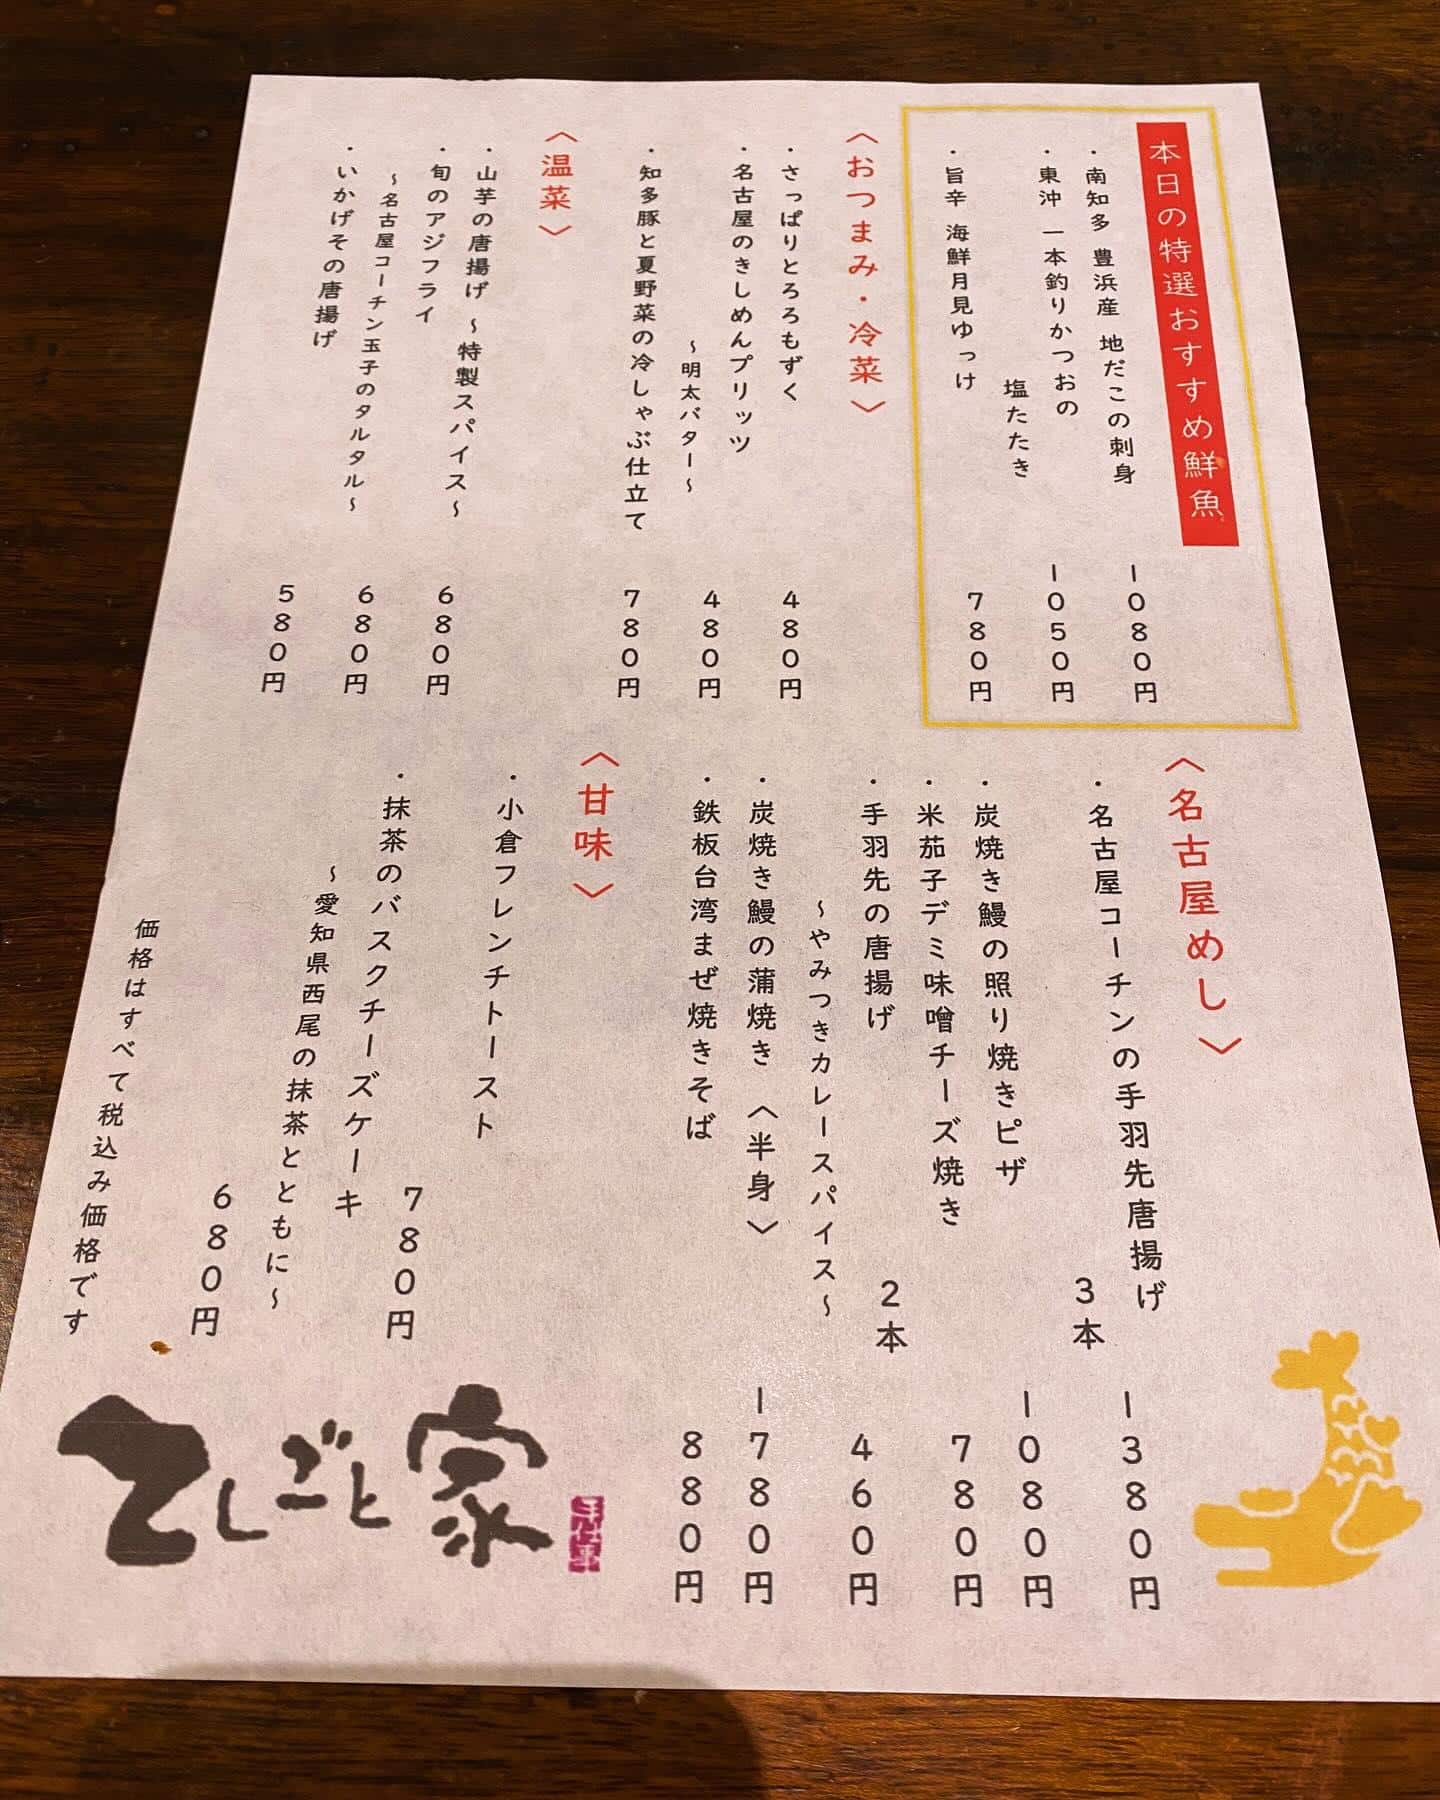 本日の特選おすすめ鮮魚
・南知多 豊浜産 地だこの刺身 1080円
・東沖 一本釣りかつおの
塩たたき 1050円
・旨辛 海鮮月見ゆっけ 780円
〈おつまみ・冷菜〉
・さっぱりとろろもずく 480円
・名古屋のきしめんプリッツ
~明太バター~ 480円
・知多豚と夏野菜の冷しゃぶ仕立て 780円
〈温菜〉
・山芋の唐揚げ ~特製スパイス~ 680円
・旬のアジフライ
~名古屋コーチン玉子のタルタル~ 680円
・いかげその唐揚げ 580円
〈名古屋めし〉
・名古屋コーチンの手羽先唐揚げ
3本 1380円
・炭焼き鰻の照り焼きピザ 1080円
・米茄子デミ味噌チーズ焼き 780円
・手羽先の唐揚げ 2本 460円
~やみつきカレースパイス~
・炭焼き鰻の蒲焼き 〈半身〉 1780円
・鉄板台湾まぜ焼きそば 880円
〈甘味〉
・小倉フレンチトースト 780円
・抹茶のバスクチーズケーキ
~愛知県西尾の抹茶とともに~ 680円
価格はすべて税込み価格です
てしごと家